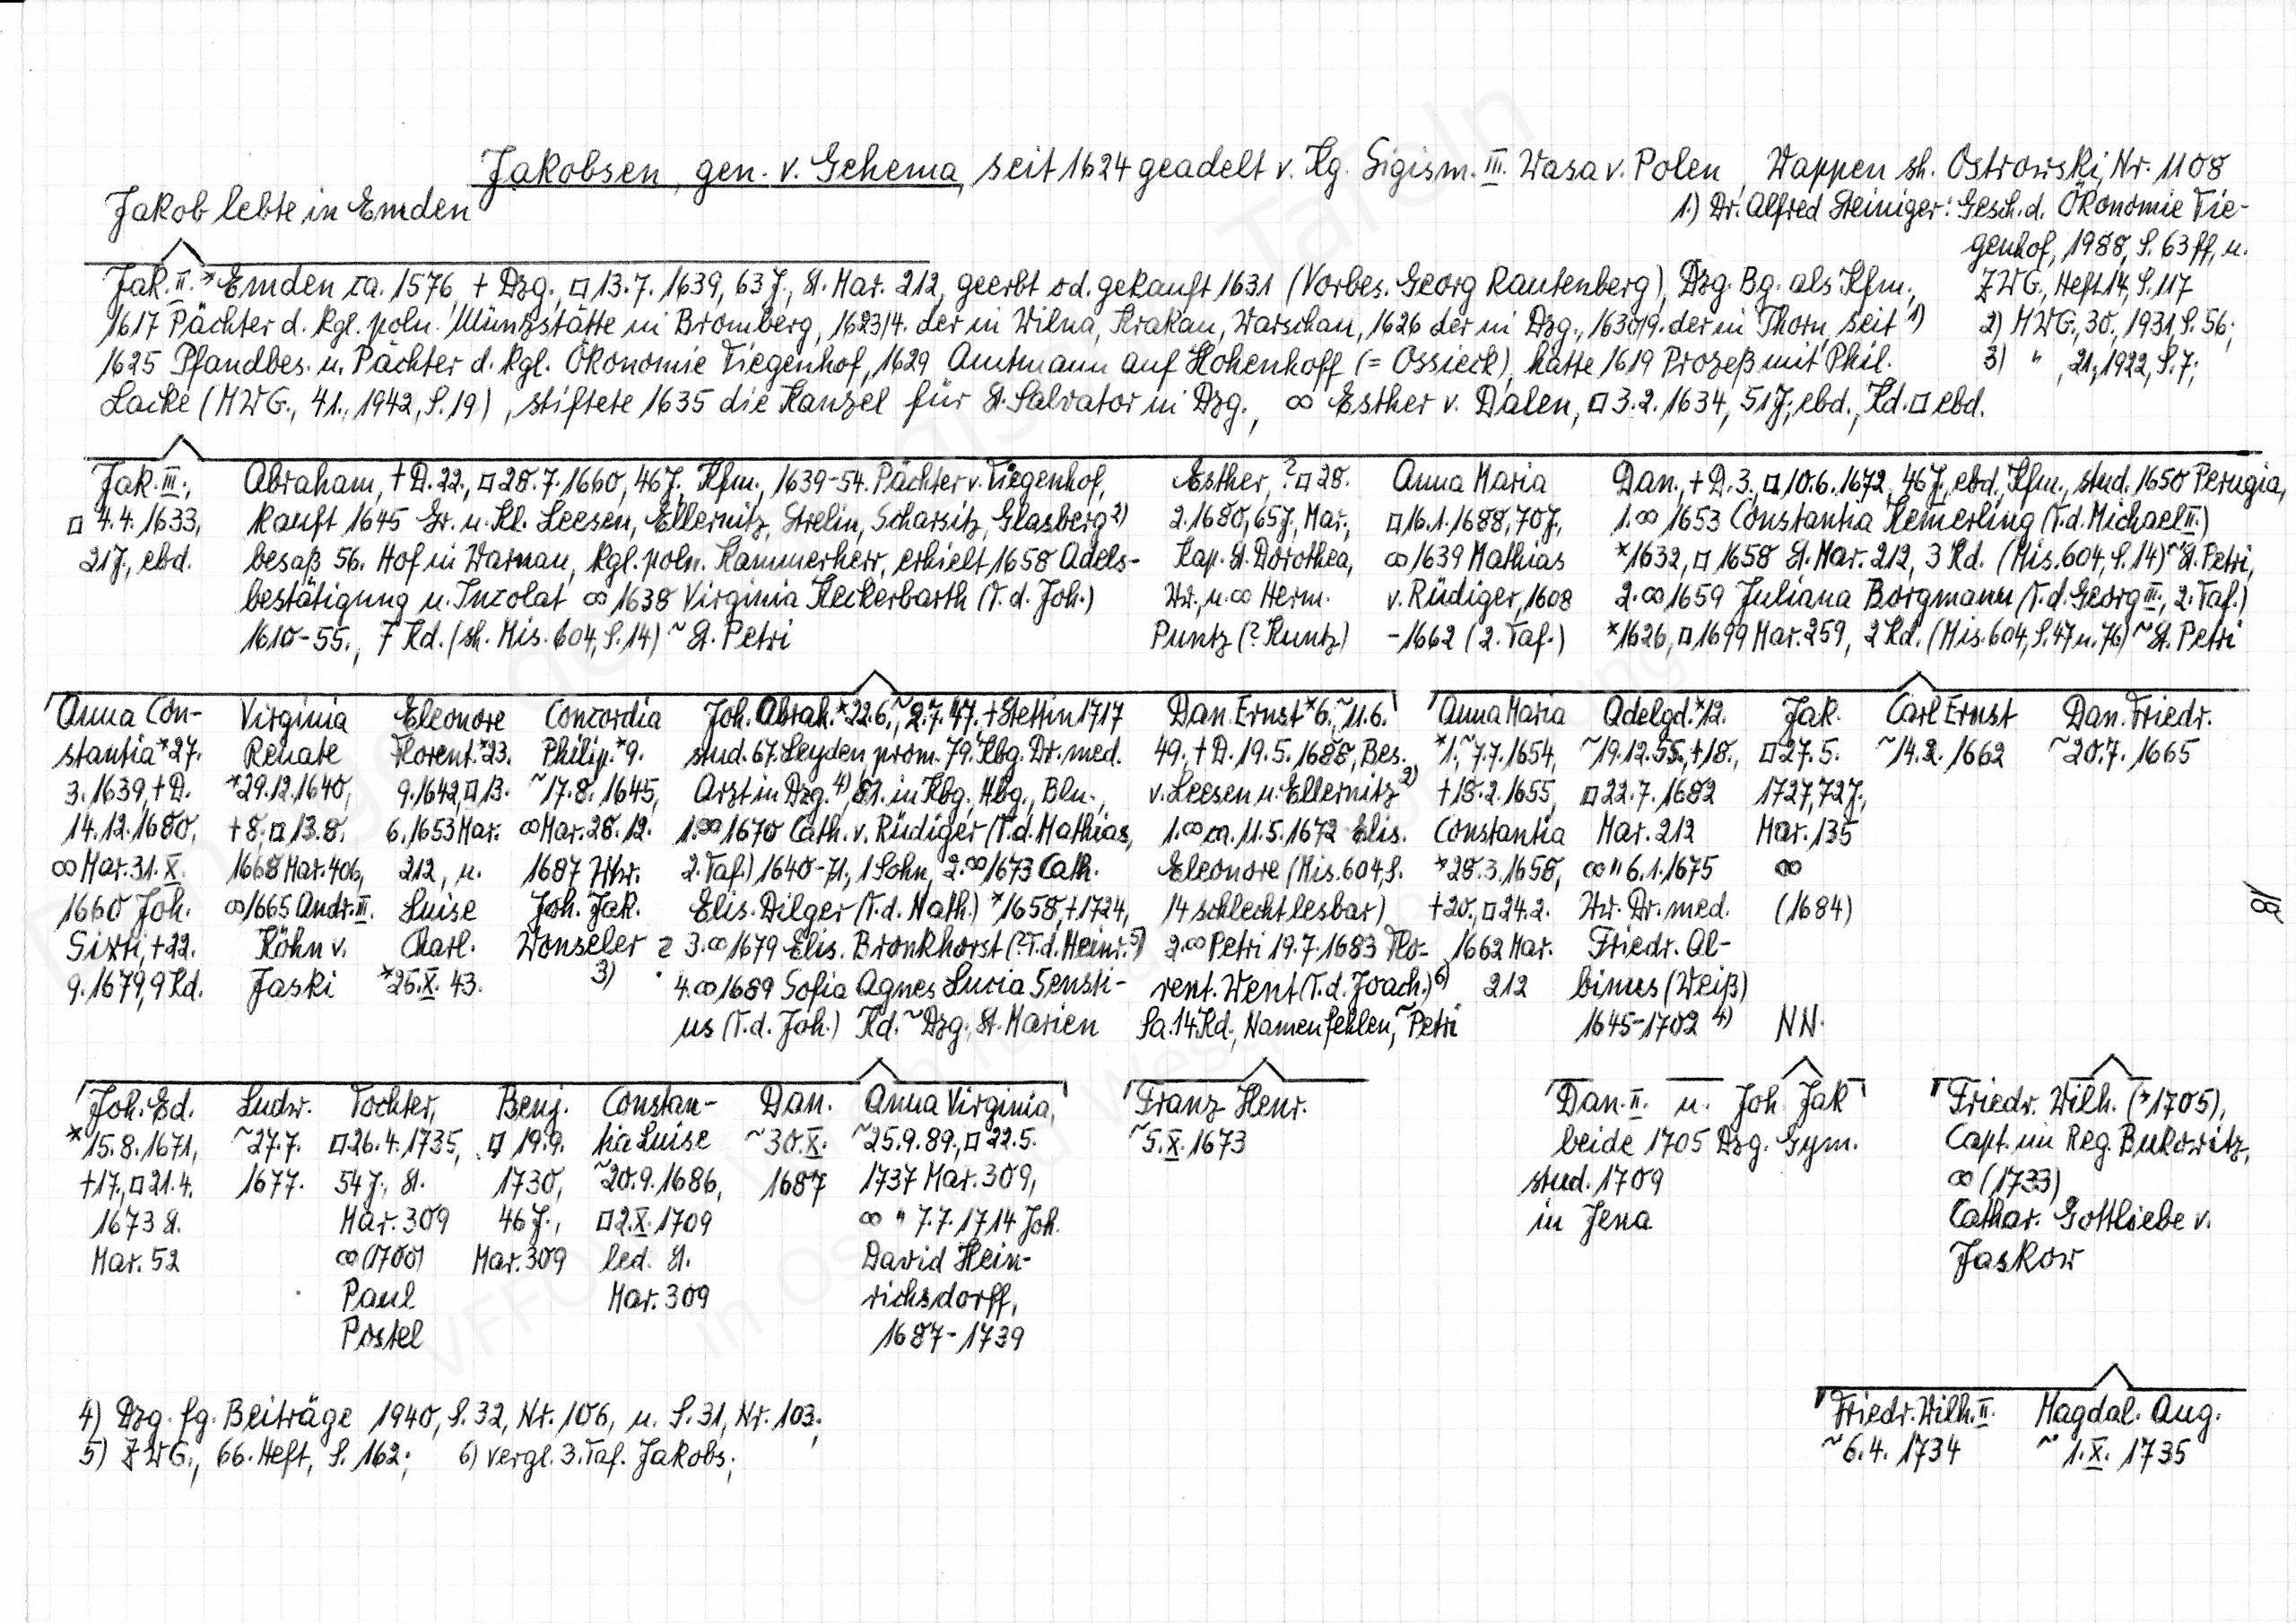 Jakobsen, gen. v. Gehema, seit 1624 geadelt v. Kg. Sigism. III. Wasa v. Polen, Wappen sh. Ostrowski, Nr. 1108
Jakob lebte in Emden
1.) Dr. Alfred Steiniger: Gesch. d. Ökonomie Tie-
genhof, 1988, S. 63 ff, u.
ZWG., Heft 14, S. 117
2) MWG., 30, 1931, S. 56;
3) " , 21, 1922, S. 7;
Jak. II. * Emden ca. 1576, + Dzg., □ 13.7.1639, 63 J., St. Mar. 212, geerbt od. gekauft 1631 (Vorbes. Georg Rautenberg), Dzg. Bg. als Kfm.,
1617 Pächter d. kgl. poln. Münzstätte in Bromberg, 1623/4. der in Wilna, Krakau, Warschau, 1626 der in Dzg., 1630/9. der in Thorn, seit 1)
1625 Pfandbes. u. Pächter d. kgl. Ökonomie Tiegenhof, 1629 Amtmann auf Hohenhoff (= Ossieck), hatte 1619 Prozeß mit Phil.
Lacke (MWG., 41., 1942, S. 19.), stiftete 1635 die Kanzel für St. Salvator in Dzg., ∞ Esther v. Dalen, □ 3.2.1634, 51 J., ebd., Kd. □ ebd.
Jak. III.,
□ 4.4.1633,
21 J., ebd.
Abraham, + D. 22., □ 28.7.1660, 46 J., Kfm., 1639-54. Pächter v. Tiegenhof,
kauft 1645 Gr. u. Kl. Leesen, Ellernitz, Strelin, Scharsitz, Glasberg 2)
besaß 56. Hof in Warnau, kgl. poln. Kammerherr, erhielt 1658 Adels-
bestätigung u. Inzolat ∞ 1638 Virginia Keckerbarth (T. d. Joh.)
1610-55., 7 Kd. (sh. Mis. 604, S. 14) ~ St. Petri
Esther, ? □ 28.
2.1680, 65 J., Mar.,
Kap. St. Dorothea,
Ww. u. ∞ Herm.
Puntz (? Kuntz)
Anna Maria
□ 16.1.1688, 70 J.,
∞ 1639 Mathias
v. Rüdiger, 1608
-1662 (2. Taf.)
Dan., + D. 3., □ 10.6.1672, 46 J., ebd., Kfm., stud. 1650 Perugia,
1. ∞ 1653 Constantia Kemerling (T. d. Michael II.)
*1632, □ 1658 St. Mar. 212, 3 Kd. (Mis. 604, S. 14) ~ St. Petri,
2. ∞ 1659 Juliana Borgmann (T. d. Georg III., 2. Taf.)
*1626, □ 1699 Mar. 259, 2 Kd. (Mis. 604, S. 47 u. 76) ~ St. Petri
Anna Con-
stantia *27.
3.1639, + D.
14.12.1680,
∞ Mar. 31.X.
1660 Joh.
Sixti, +22.
9.1679, 9 Kd.
Virginia
Renate
*29.12.1640,
+8. □ 13.8.
1668 Mar. 406,
∞ 1665 Andr. III.
Köhn v.
Jaski
Eleonore
Florent. *23.
9.1642, □ 13.
6.1653 Mar.
212, u.
Luise
Charl.
*25.X.43.
Concordia
Philip. *9.
~17.8.1645,
∞ Mar. 28.12.
1687 Wwr.
Joh. Jak.
Wonseler
3)
Joh. Abrah. *22.6., ~2.7.47. + Stettin 1717
stud. 67. Leyden prom. 79. Kbg. Dr. med.
Arzt in Dzg. 4), 81. in Kbg., Hbg., Bln.,
1. ∞ 1670 Cath. v. Rüdiger (T. d. Mathias,
2. Taf.) 1640-71., 1 Sohn, 2. ∞ 1673 Cath.
Elis. Dilger (T. d. Nath.) *1658, +1724,
3. ∞ 1679 Elis. Bronkhorst (? T. d. Heinr. 5)
4. ∞ 1689 Sofia Agnes Lucia Sensti-
us (T. d. Joh.) Kd. ~ Dzg. St. Marien
Dan. Ernst *6., ~11.6.
49. + D. 19.5.1688, Bes.
v. Leesen u. Ellernitz 2)
1. ∞ ca. 11.5.1672 Elis.
Eleonore (Mis. 604, S.
14 schlecht lesbar)
2. ∞ Petri 19.7.1683 Flo-
rent. Went (T. d. Joach.) 6)
Sa. 14 Kd., Namen fehlen, ~ Petri
Anna Maria
*1., ~7.7.1654,
+18.2.1655,
Constantia
*28.3.1658,
+20., □ 24.2.
1662 Mar.
212
Adelgd. *12.
~19.12.55, +18.,
□ 22.7.1682
Mar. 212
∞ " 6.1.1675
Ww. Dr. med.
Friedr. Al-
binus (Weiß)
1645-1702 4)
Jak.
□ 27.5.
1727, 72 J.,
Mar. 135
∞
(1684)
NN.
Carl Ernst
~14.2.1662
Dan. Friedr.
~20.7.1665
18
Joh. Ed.
*15.8.1671,
+17., □ 21.4.
1673 St.
Mar. 52
Ludw.
~27.7.
1677.
Tochter,
□ 26.4.1735,
54 J., St.
Mar. 309
∞ (1700)
Paul
Postel
Benj.
□ 19.9.
1730,
46 J.,
Mar. 309
Constan-
tia Luise
~20.9.1686,
□ 2.X.1709
led. St.
Mar. 309
Dan.
~30.X.
1687
Anna Virginia,
~25.9.89., □ 22.5.
1737 Mar. 309,
∞ " 7.7.1714 Joh.
David Hein-
richsdorff,
1687-1739
Franz Henr.
~5.X.1673
Dan. II. u. Joh. Jak
beide 1705 Dzg. Gym.
stud. 1709
in Jena
Friedr. Wilh. (*1705),
Capt. im Reg. Bukowitz,
∞ (1733)
Cathar. Gottliebe v.
Jaskow
Friedr. Wilh. II.
~6.4.1734
Magdal. Aug.
~1.X.1735
4) Dzg. fg. Beiträge 1940, S. 32, Nr. 106, u. S. 31, Nr. 103;
5) ZWG., 66. Heft, S. 162; 6) vergl. 3. Taf. Jakobs;